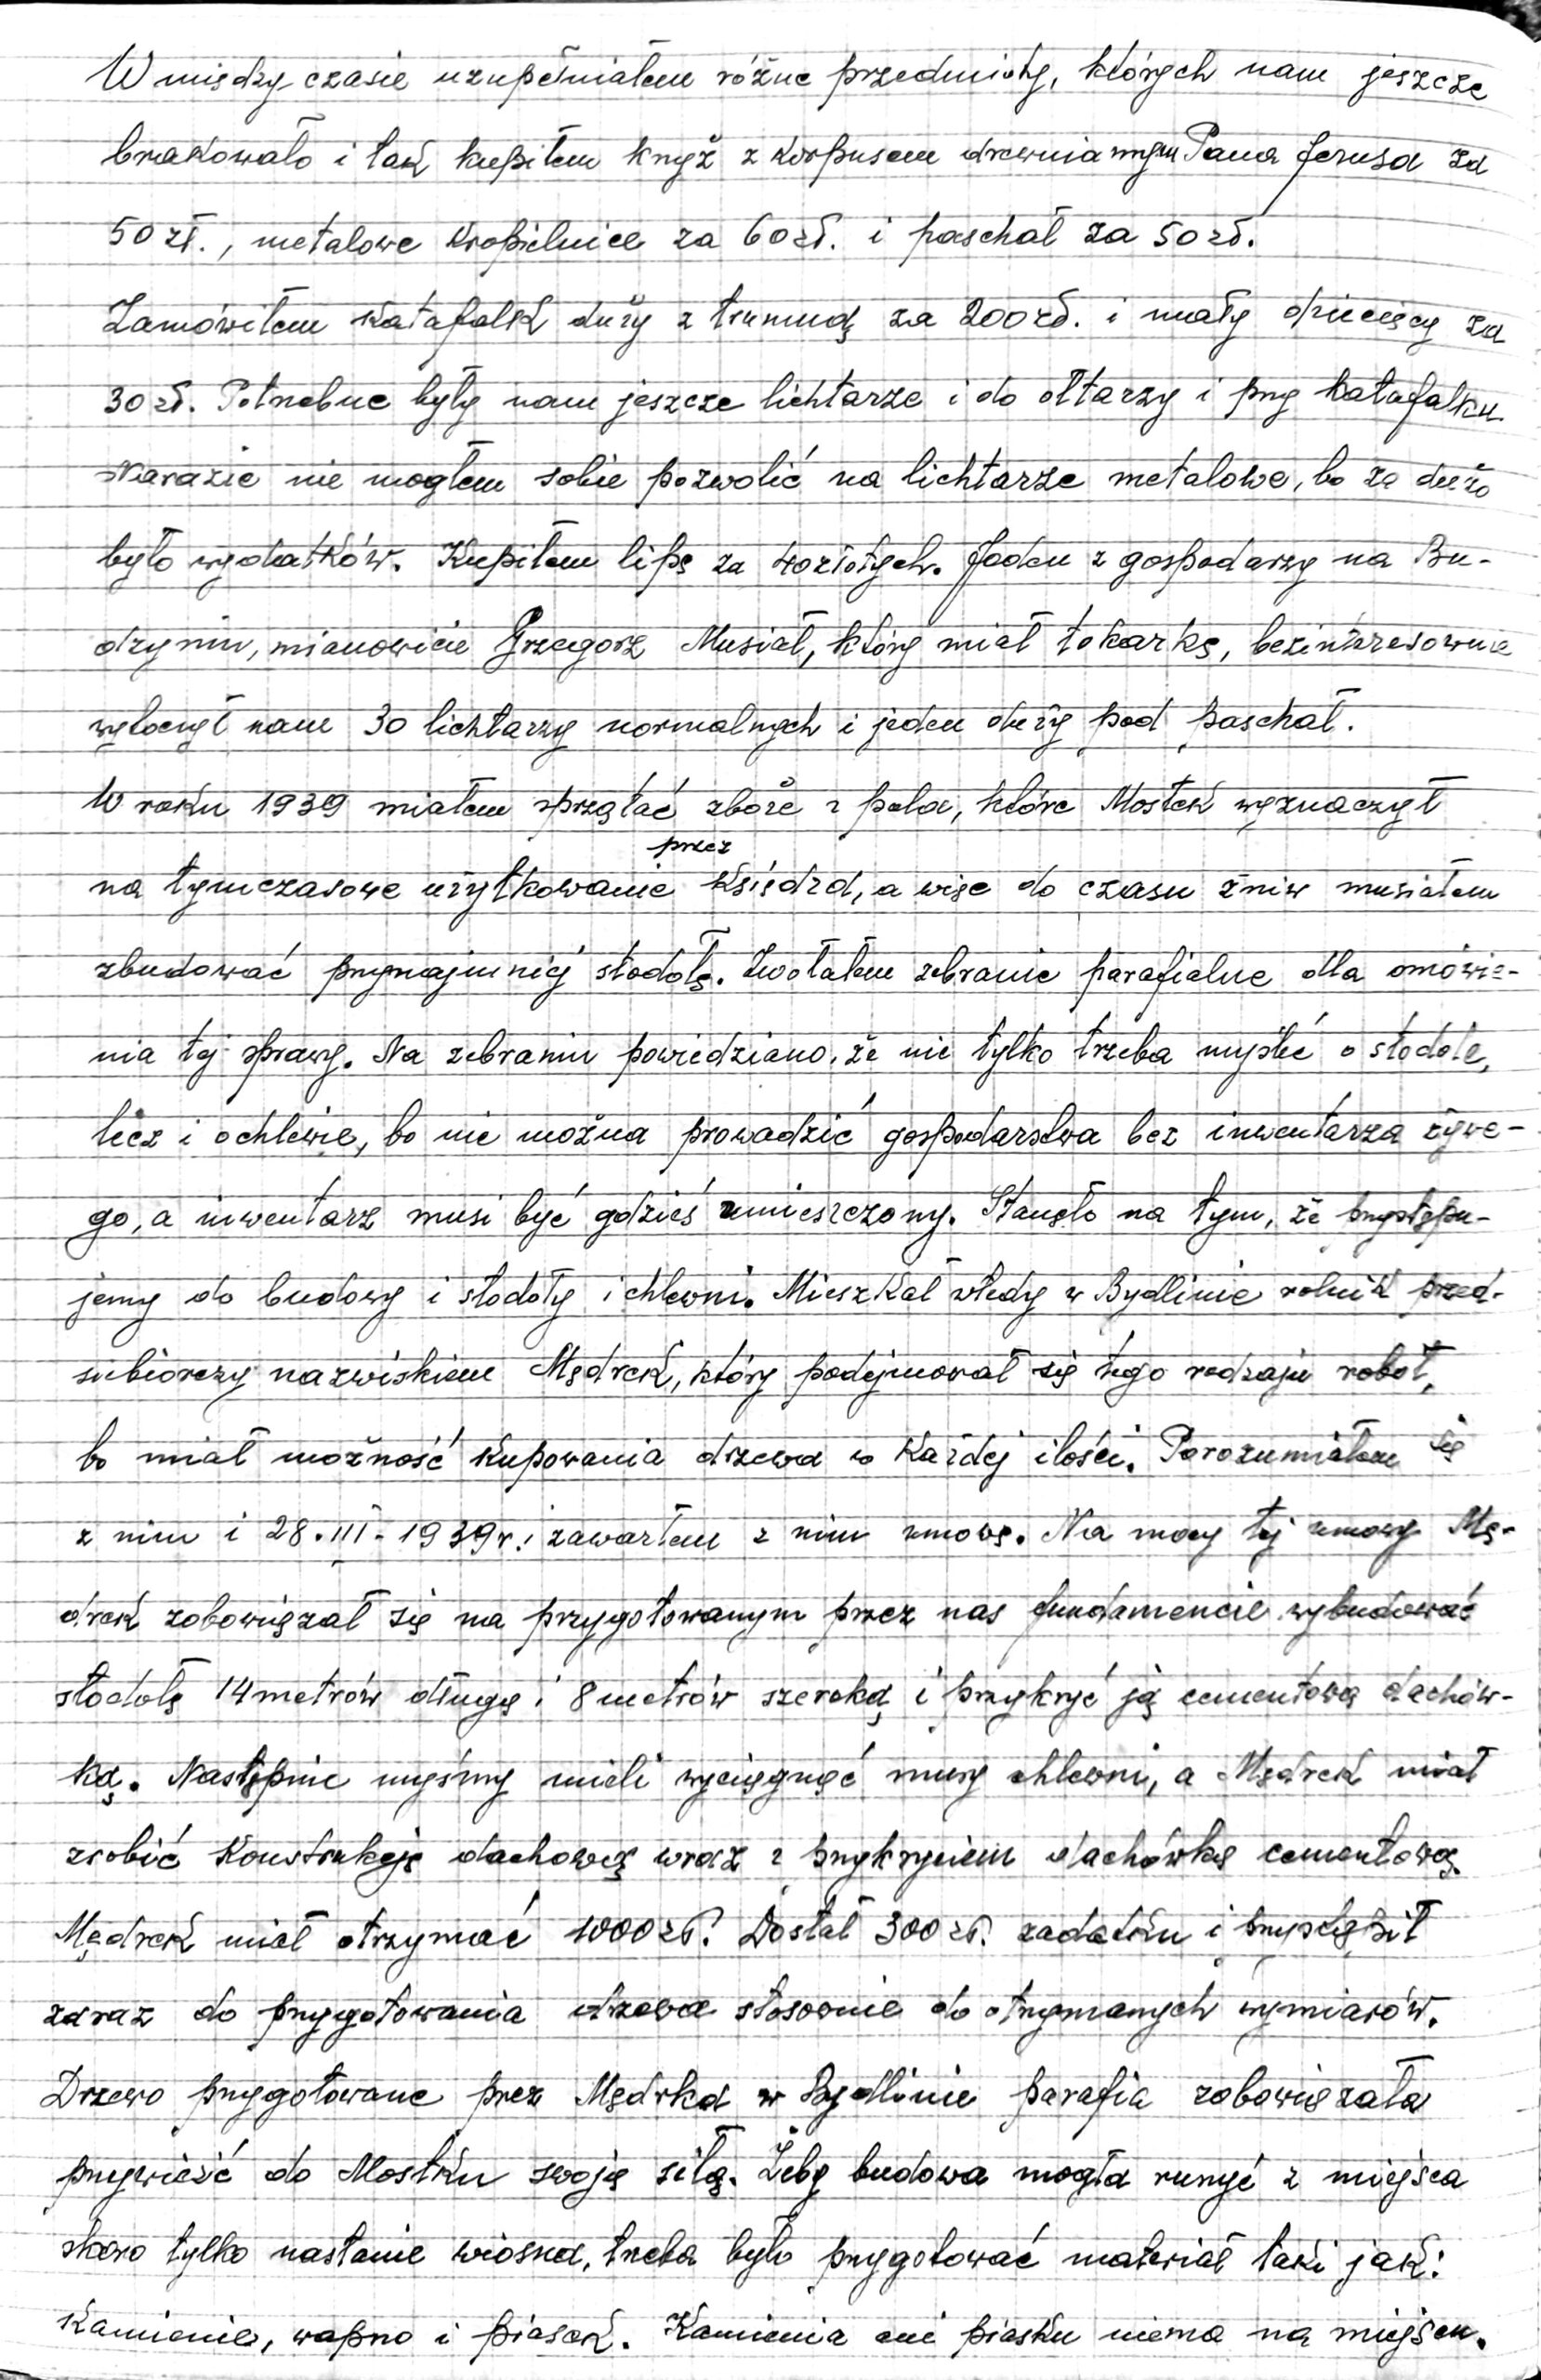 W między czasie uzupełniałem różne przedmioty, których nam jeszcze
brakowało i tak kupiłem krzyż z korpusem drewnianym Pana Jezusa za
50 zł., metalowe kropielnice za 60 zł. i paschał za 50 zł.
Zamówiłem katafalk duży z trumną za 200 zł. i mały dziecięcy za
30 zł. Potrzebne były nam jeszcze lichtarze i do ołtarzy i przy katafalku.
Narazie nie mogłem sobie pozwolić na lichtarze metalowe, bo za dużo
było wydatków. Kupiłem lipę za 40 złotych. Jeden z gospodarzy na Bu-
dzyniu, mianowicie Grzegorz Musiał, który miał tokarkę, bezinteresownie
wytoczył nam 30 lichtarzy normalnych i jeden duży pod paschał.
W roku 1939 miałem sprzątać zboże z pola, które Mostek wyznaczył
na tymczasowe użytkowanie przez księdza, a więc do czasu żniw musiałem
zbudować przynajmniej stodołę. Zwołałem zebranie parafialne dla omówie-
nia tej sprawy. Na zebraniu powiedziano, że nie tylko trzeba myśleć o stodole,
lecz i o chlewie, bo nie można prowadzić gospodarstwa bez inwentarza żywe-
go, a inwentarz musi być gdzieś umieszczony. Stanęło na tym, że przystępu-
jemy do budowy i stodoły i chlewni. Mieszkał wtedy w Bydlinie rolnik przed-
siubiorczy nazwiskiem Mędrek, który podejmował się tego rodzaju robót,
bo miał możność kupowania drzewa w każdej ilości. Porozumiałem się
z nim i 28.III.1939 r. zawarłem z nim umowę. Na mocy tej umowy Mę-
drek zobowiązał się na przygotowanym przez nas fundamencie wybudować
stodołę 14 metrów długą i 8 metrów szeroką i przykryć ją cementową dachów-
ką. Następnie myśmy mieli wyciągnąć mury chlewni, a Mędrek miał
zrobić konstrukcję dachową wraz z przykryciem dachówką cementową.
Mędrek miał otrzymać 1000 zł. Dostał 300 zł. zadatku i przystąpił
zaraz do przygotowania drzewa stosownie do otrzymanych wymiarów.
Drzewo przygotowane przez Mędrka w Bydlinie parafia zobowiązała
przywieźć do Mostku swoją siłą. Żeby budowa mogła ruszyć z miejsca
skoro tylko nastanie wiosna, trzeba było przygotować materiał taki jak:
kamienie, wapno i piasek. Kamienia ani piasku niema na miejscu.